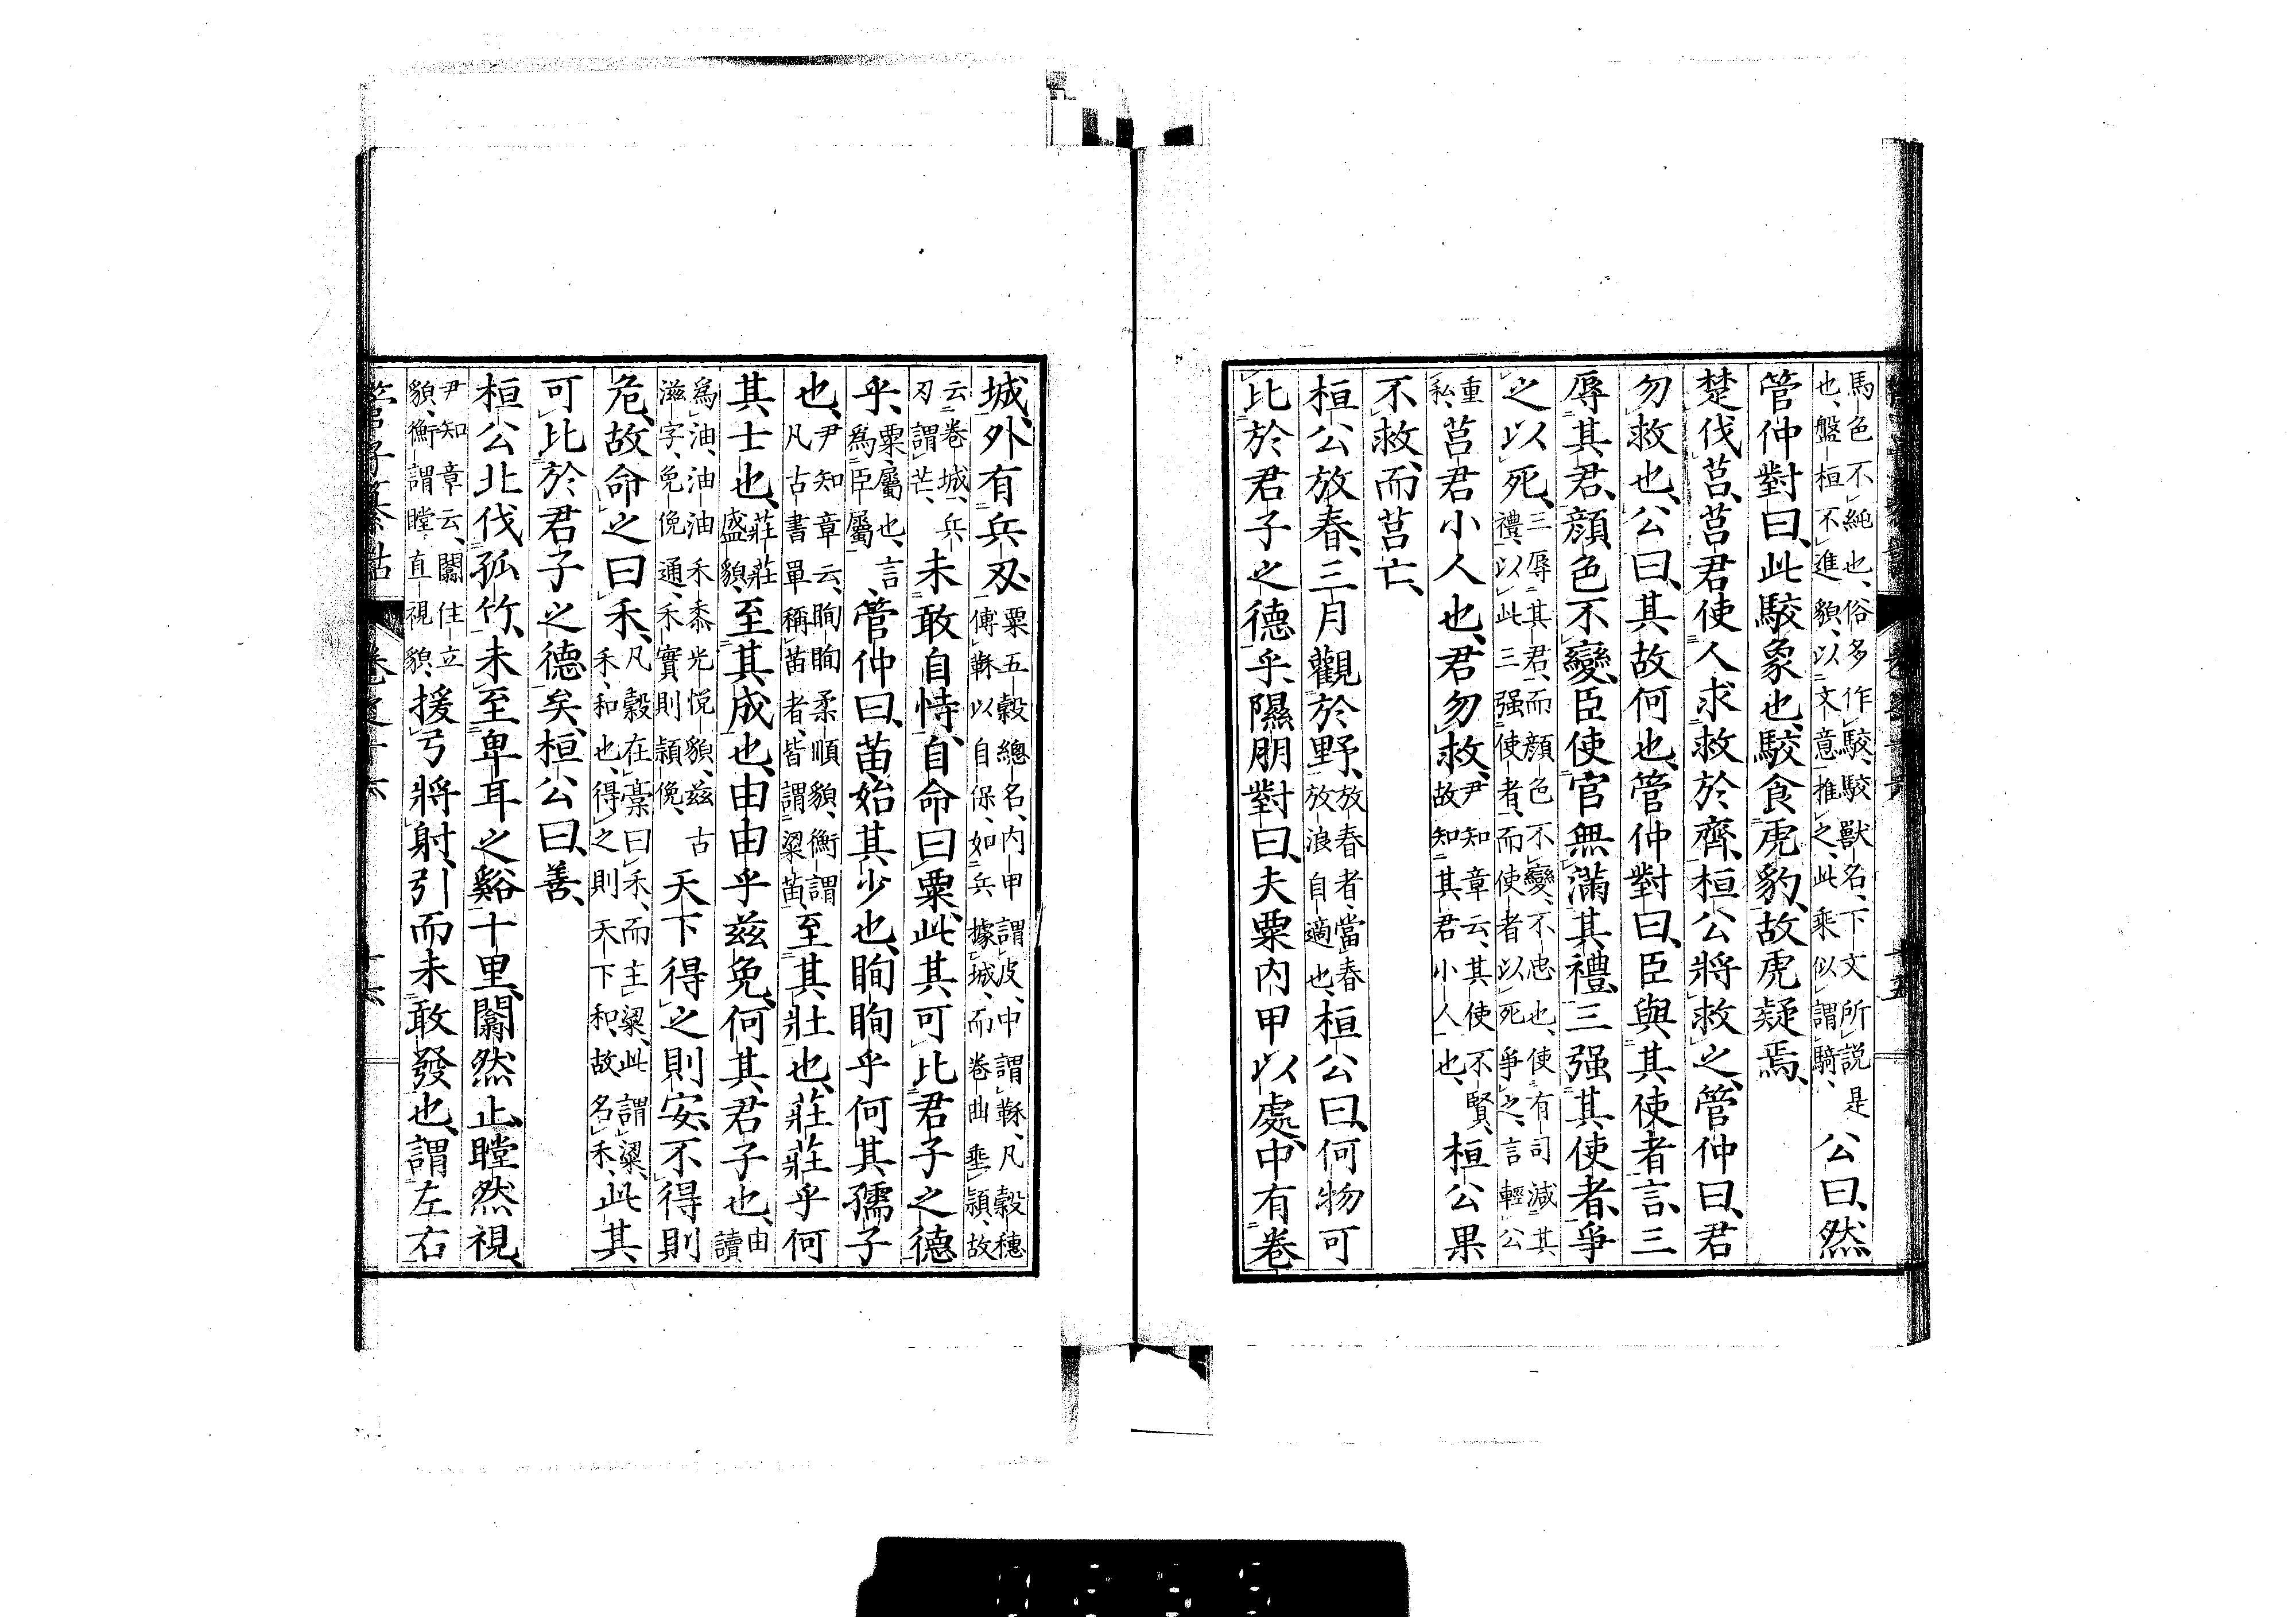 馬色不純也、俗多作駮、駮獸名、下文所説是
也、盤桓不進貌、以文意推之、此乘似謂騎、公曰、然
管仲對曰、此駮象也、駮食虎豹、故虎疑焉、
楚伐莒、莒君使人求救於齊、桓公將救之、管仲曰、君
勿救也、公曰、其故何也、管仲對曰、臣與其使者言、三
辱其君、顏色不變、臣使官無滿其禮、三强其使者、爭
之以死、三辱其君、而顏色不變、不忠也、使有司減其
禮、以此三强使者、而使者以死爭之、言輕公
重
私、莒君小人也、君勿救、尹知章云、其使不賢、
故知其君小人也、桓公果
不救、而莒亡、
桓公放春、三月觀於野、放春者、當春
放浪自適也、桓公曰、何物可
比於君子之德乎、隰朋對曰、夫粟內甲以處、中有卷
城、外有兵刃、粟五穀總名、内甲謂皮、中謂穌、凡穀穗
傅穌以自保、如兵據城、而卷曲垂穎、故
云卷城、兵
刃謂芒、未敢自恃、自命曰粟、此其可比君子之德
乎、粟、屬也、言
爲臣屬、管仲曰、苗始其少也、眴眴乎何其孺子
也、尹知章云、眴眴柔順貌、衡謂
凡古書單稱苗者、皆謂粱苗、至其壯也、莊莊乎何
其士也、莊莊
盛貌、至其成也、由由乎兹免、何其君子也、由
讀
爲油、油油禾黍光悦貌、兹古
滋字、免俛通、禾實則穎俛、天下得之則安、不得則
危、故命之曰禾、凡穀在藁曰禾、而主粱、此謂粱、
禾、和也、得之則天下和、故名禾、此其
可比於君子之德矣、桓公曰、善、
桓公北伐孤竹、未至卑耳之谿十里、闟然止、瞠然視、
尹知章云、闟住立
貌、衡謂瞠直視貌、援弓將射、引而未敢發也、謂左右
管子纂詁 卷之十六 十六